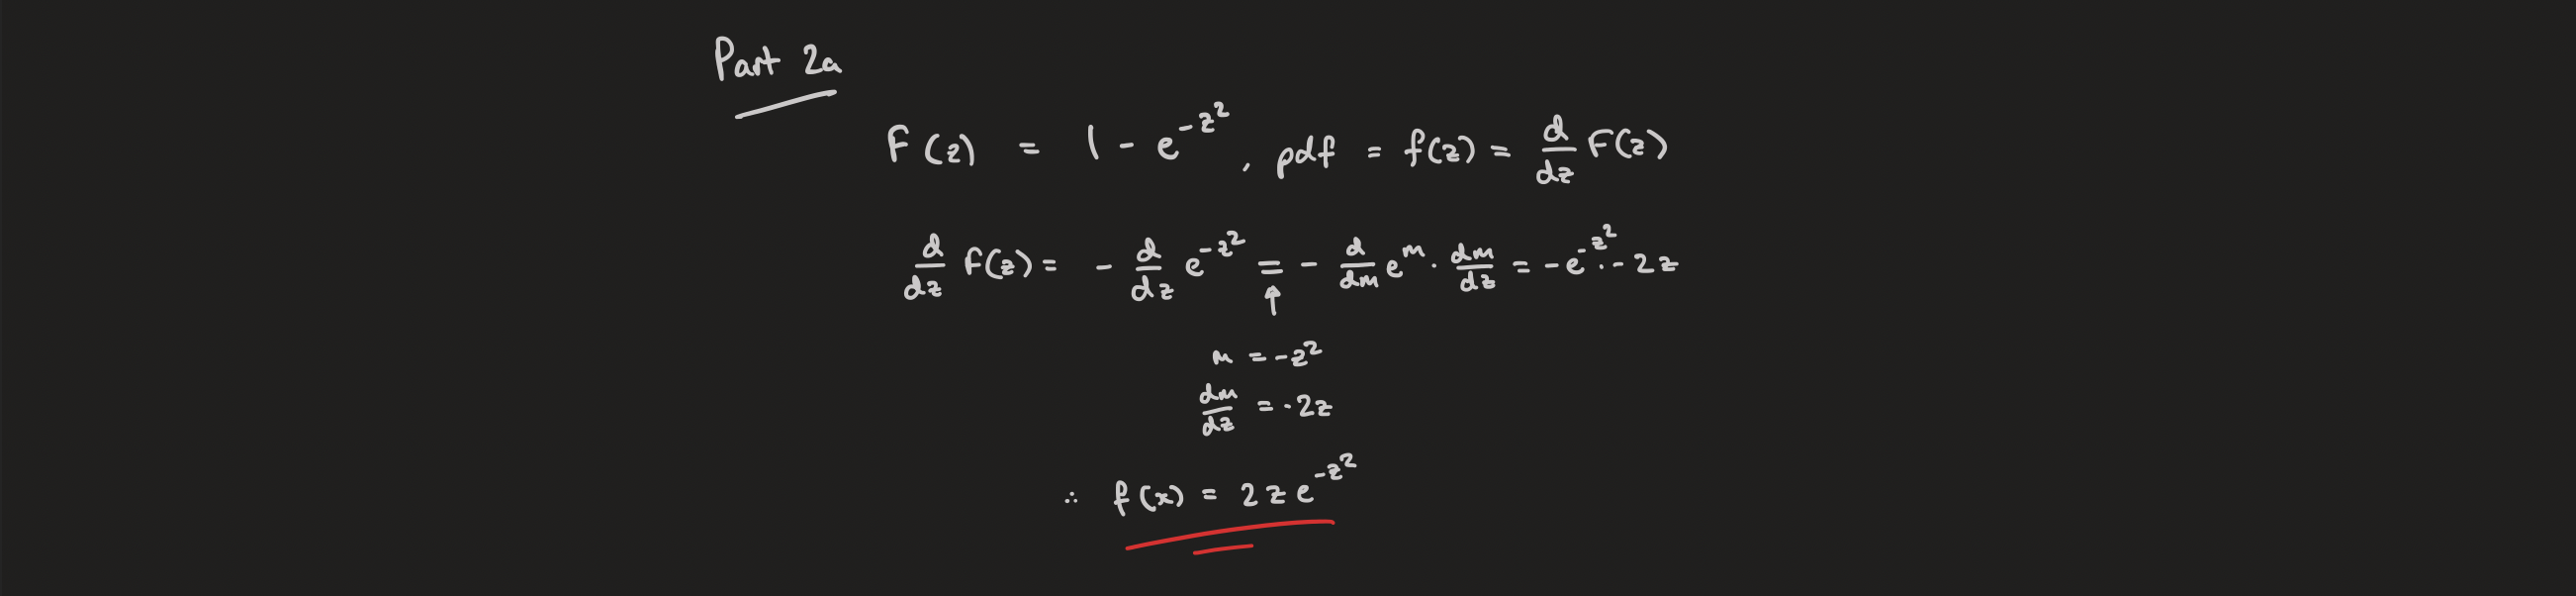 Part 2a
F(z) = 1 - e^{-z^2}, pdf = f(z) = d/dz F(z)
d/dz F(z) = - d/dz e^{-z^2} = - d/dm e^m · dm/dz = - e^{-z^2} · - 2z
↑
m = -z^2
dm/dz = -2z
∴ f(x) = 2 z e^{-z^2}